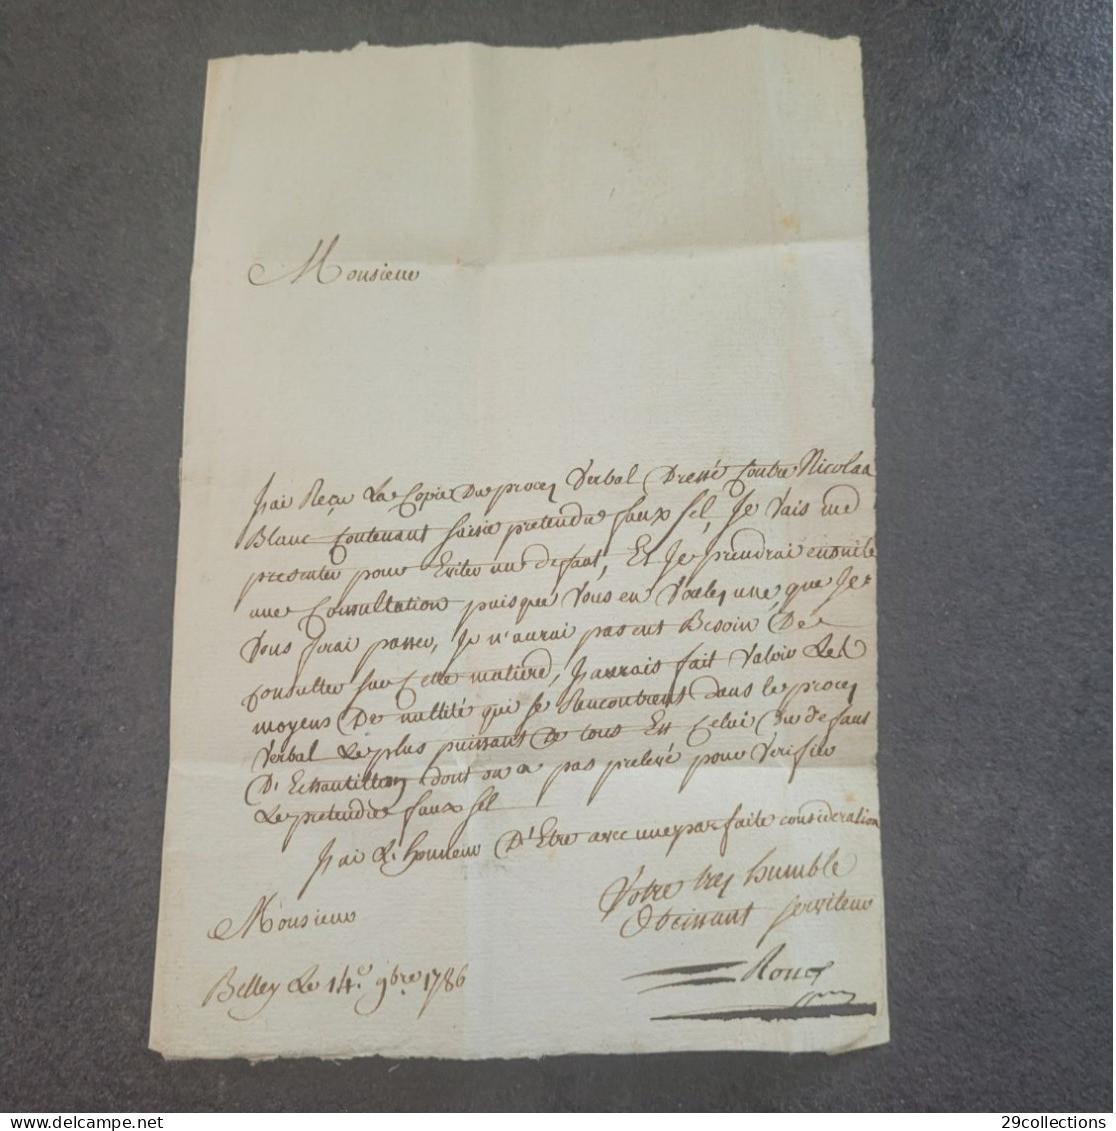 Monsieur
J'ai Reçu La Copie Du proces Verbal Dressé Contre Nicolas
Blanc Contenant saisie pretendue faux sel, Je Vais me
presenter pour Eviter un defaut, Et Je prendrai ensuite
une Consultation puisque Vous en Voulez une que Je
Vous ferai passer, Je n'aurai pas eut Besoin De
Consulter sur Cette matiere, J'aurais fait Valoir Les
moyens De nullité qui se Rencontrent dans le proces
Verbal Le plus puissant De tous Est Celui Du defaut
D'Echantillon dont on a pas prelevé pour Verifier
Le pretendue faux sel
J'ai L'honneur D'Etre avec une parfaite consideration
Monsieur
Votre tres humble
Obeissant serviteur
Belley Le 14e 9bre 1786
Roux
29collections